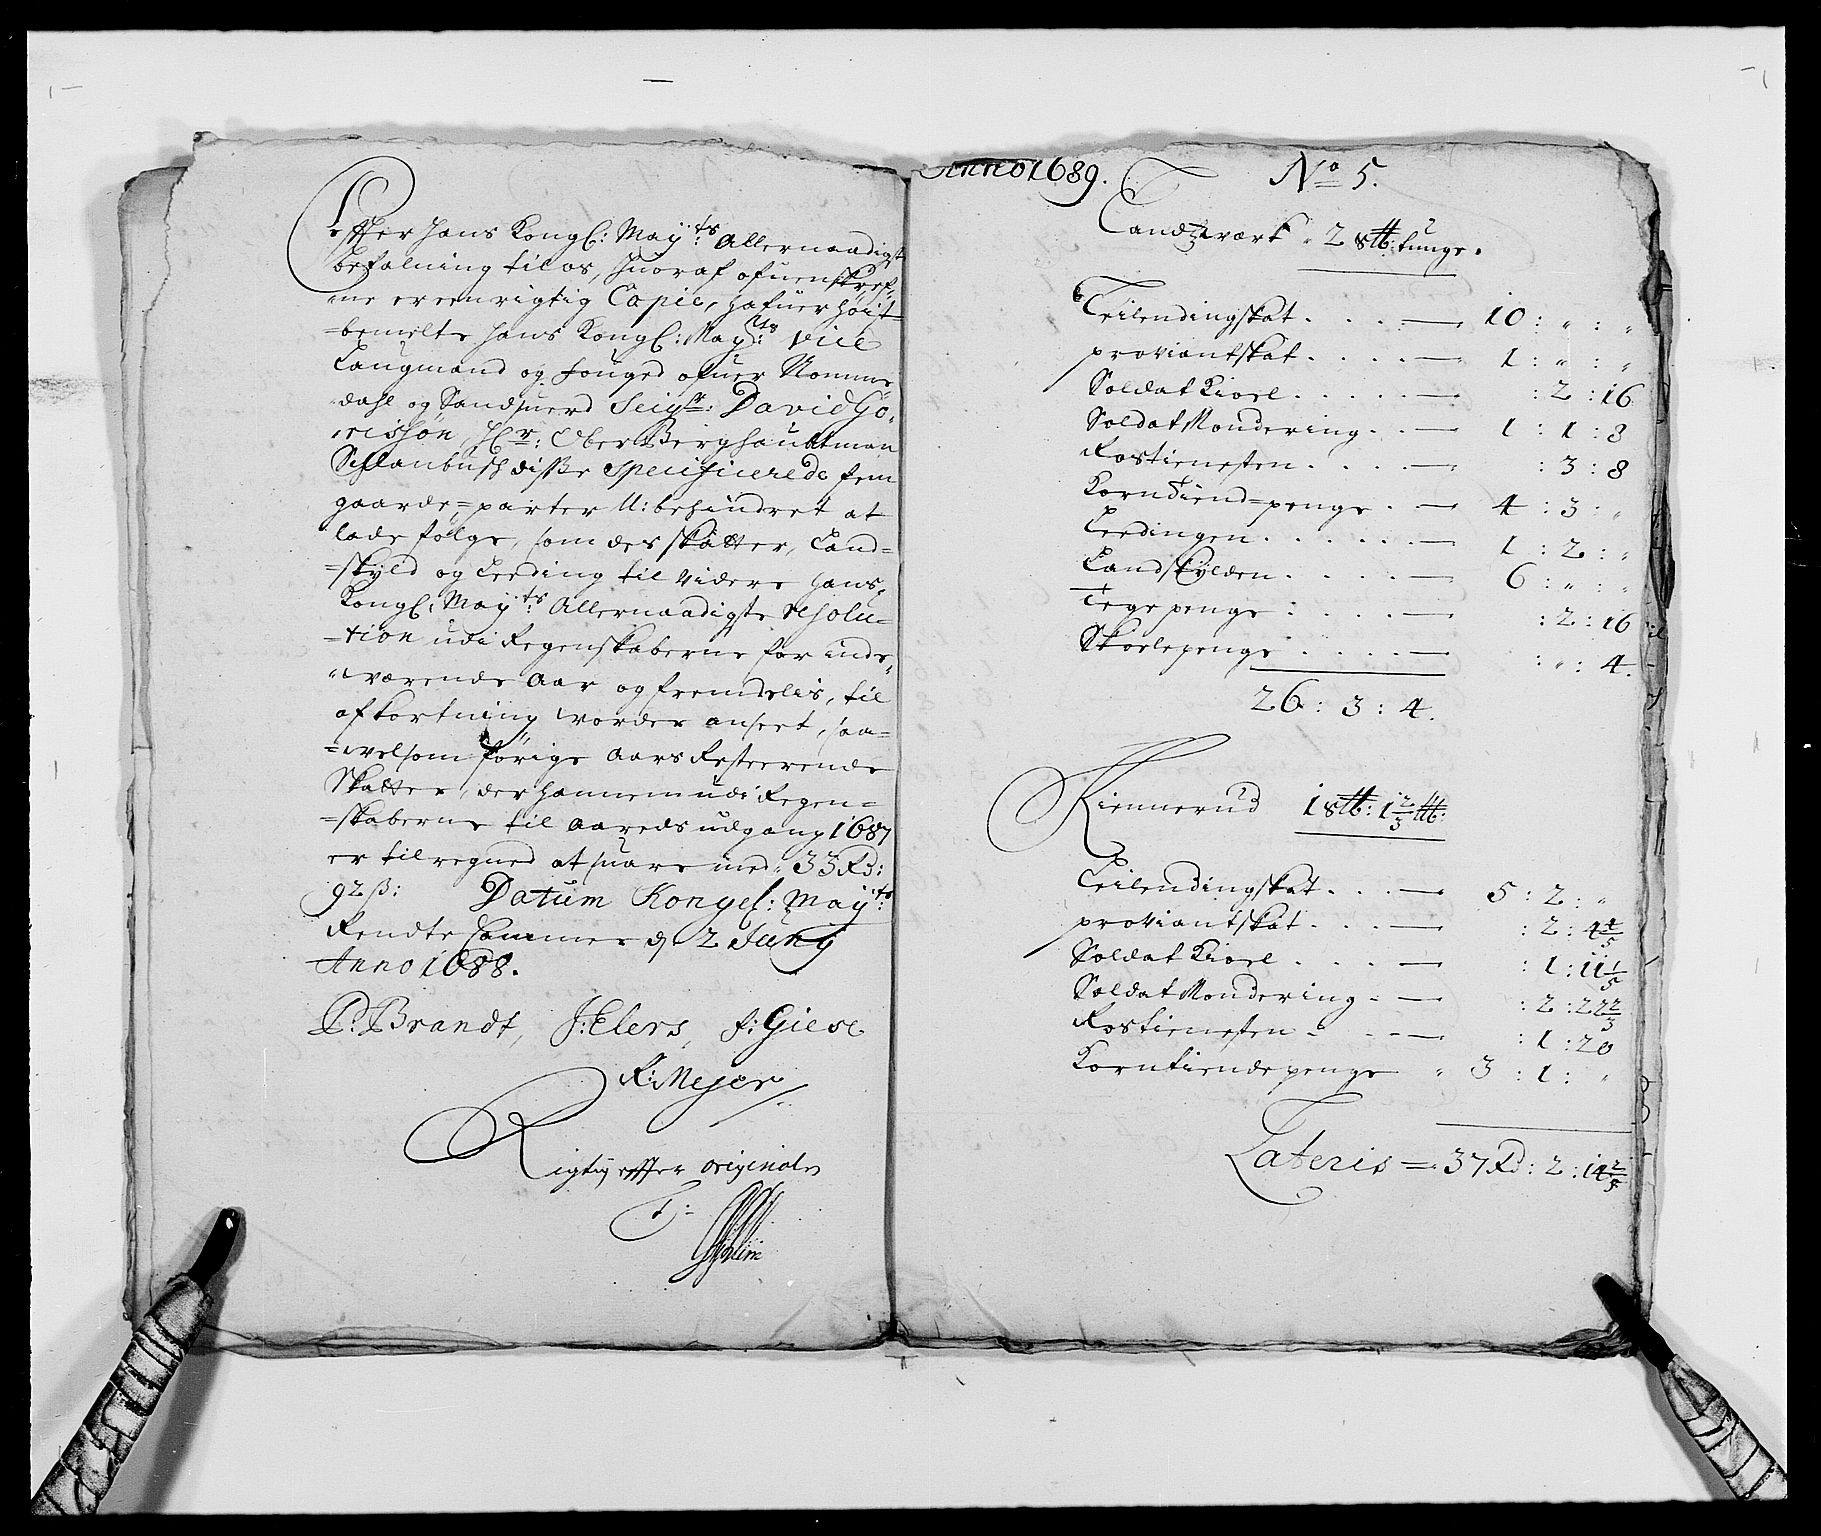 Effter Hans Kongl: May:ts Allernaadigst
befalning til os, huoraf ofuenskref-
ne er een rigtig Copie, hafuer høit-
=bemelte Hans Kongl: May:ts Vice
Laugmand og fouged ofuer Nomme
dahl og Sandsuerd Seig:r David Gö-
risjøn, H:r Ober Berghaubtman
Schlanbusch disse Specificerede fem
gaarde=parter U:behindret at
lade følge, som des skatter, Land=
=skyld og Leeding til videre Hans
Kongl: May:ts Allernaadigste resolu=
=tion udi Regenskaberne for inde
werende Aar og fremdelis, til
afkortning worder anseet, saa=
=velsom forige Aars Resteerende
Skatter, der hannem udi Regen=
=skaberne til Aareds udgang 1687
er tilregned at suare med 33 Rd:
92 ß: Datum Kongel: May:ts
Rendte Cammer d 2 Juny
Anno 1688.
P: Brandt, J: Elers, f: Giese
R: Meyer
Rigtig effter originalen
T:
Anno 1689. No 5.
Landzverk 2 s℔: tunge.
Leilendingskat . . . — 10 : " : "
proviantskat . . . . — 1 : " : "
Soldat Kiorl . . . . . — : 2 : 16
Soldat Mondering . . — 1 : 1 : 8
Rostienesten . . . . — : 3 : 8
Korntiend=penge . — 4 : 3 : "
Leedingen . . . . . . — 1 : 2 : "
Landskylden . . . . — 6 : " : "
Tege penge : . . . . — : 2 : 16
Skiorlepenge . . . . — : " : 4.
26 : 3 : 4.
Kiennerud 1 s℔: 1 2/3 ℔:
Leilendingskat . . . — 5 : 2 : "
proviantskat . . . — : 2 : 4 4/5
Soldat Kiorl . . . . — : 1 : 11 1/5
Soldat Mondering . — : 2 : 22 2/3
Rostienesten . . . — : 1 : 20
Korntiende penge " 3 : 1 : "
Lateris — 37 Rd : 2 : 14 2/5